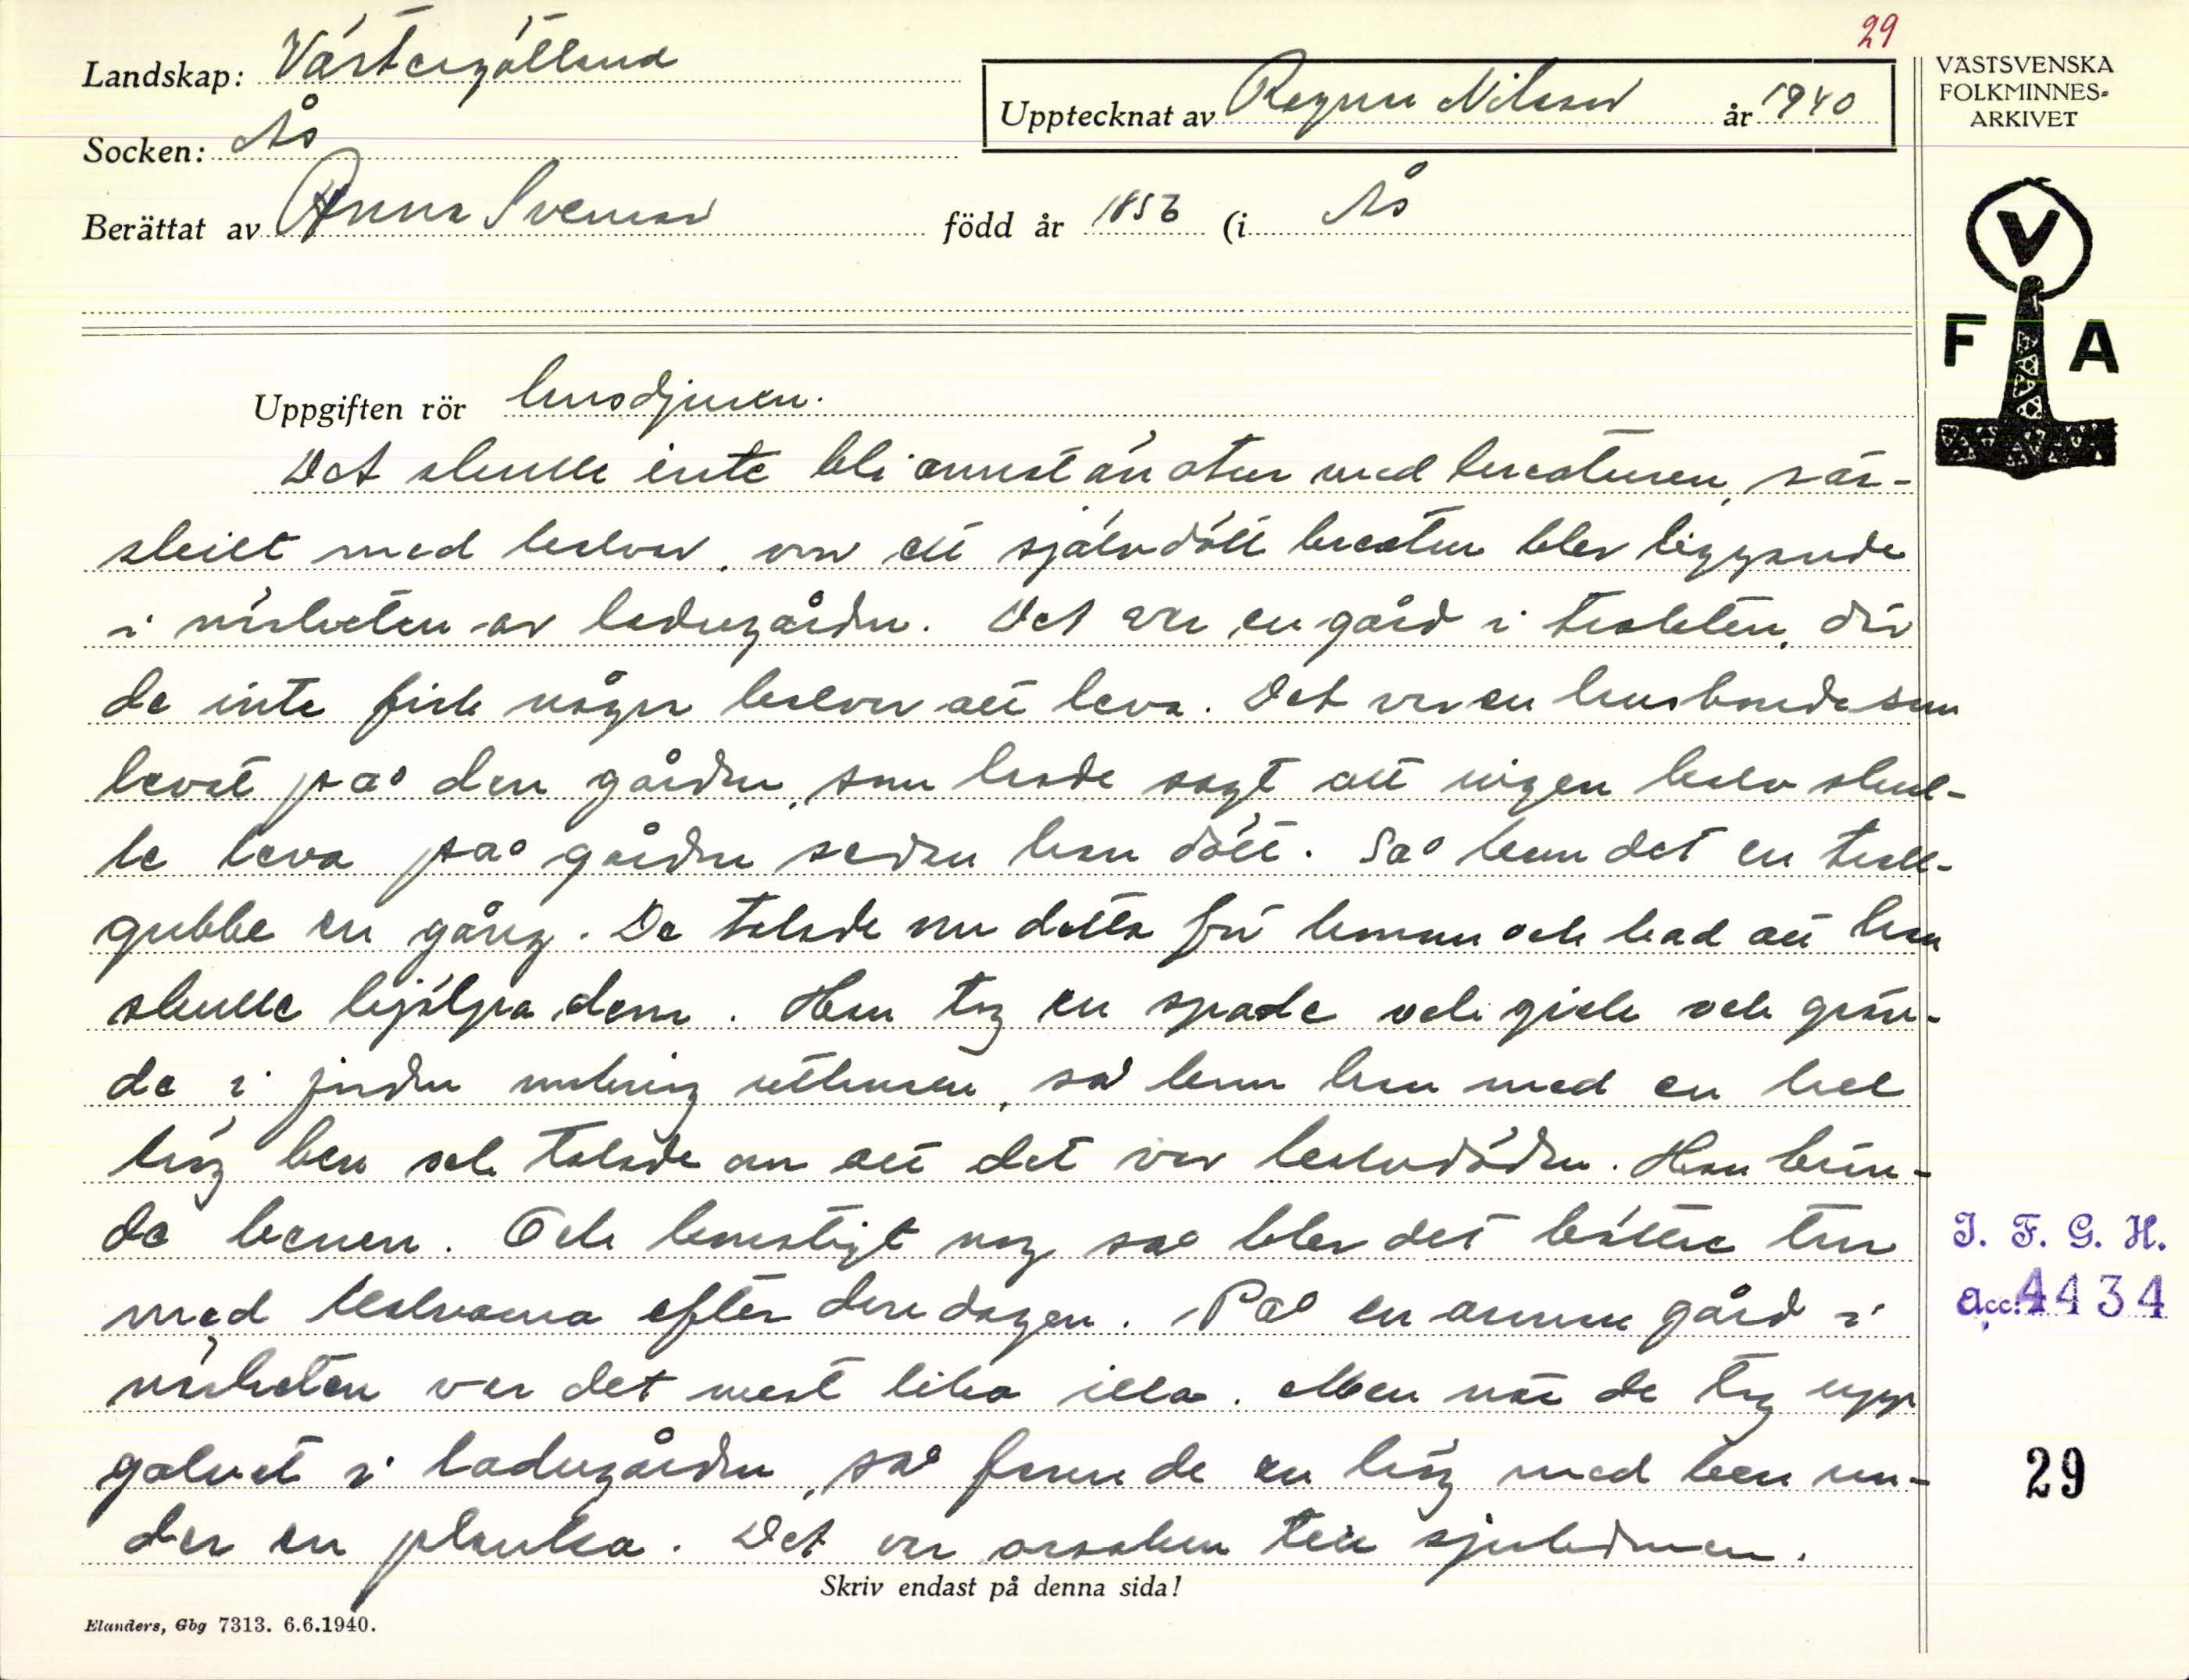 29
Landskap: Västergötland
Socken: Ås
Upptecknat av Ragnar Nilsson år 1940
VÄSTSVENSKA
FOLKMINNES-
ARKIVET
Berättat av Anna Svenson född år 1856 (i Ås
V
F A
Uppgiften rör husdjuren.
Det skulle inte bli annat än otur med kreaturen, sär-
skilt med kalvar, om ett självdött kreatur blev liggande
i närheten av ladugården. Det var en gård i trakten, där
de inte fick några kalvar att leva. Det var en husbonde som
levat på den gården, som hade sagt att ingen kalv skul-
le leva på gården sedan han dött. Så kom det en trall-
gubbe en gång. De talade om detta för honom och bad att han
skulle hjälpa dem. Han tog en spade och gick och gräv-
de i jorden omkring uthusen, så kom han med en hel
hög ben och talade om att det var kalvdöden. Han brän-
de benen. Och konstigt nog så blev det bättre tur
med kalvarna efter den dagen. På en annan gård i
närheten var det mest lika illa. Men när de tog upp
golvet i ladugården, så fann de en hög med ben un-
der en planka. Det var orsaken till sjukdomen.
Skriv endast på denna sida!
Elanders, Gbg 7313. 6.6.1940.
I. F. G. H.
Acc. 4434
29